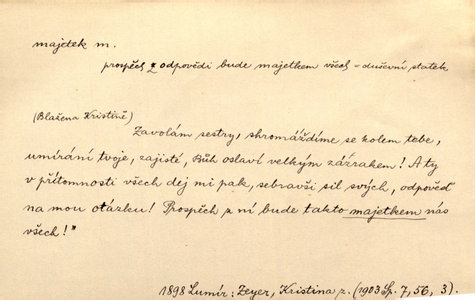 majetek m.
prospěch z odpovědi bude majetkem všech - duševní statek
(Blažena Kristině)
Zavolám sestry, shromáždíme se kolem tebe,
umírání tvoje, zajisté, Bůh oslaví velkým zázrakem! A ty
v přítomnosti všech dej mi pak, sebravši sil svých, odpověď
na mou otázku! Prospěch z ní bude takto majetkem nás
všech!"
1898 Lumír: Zeyer, Kristina z. (1903 Sp. 7, 56, 3).